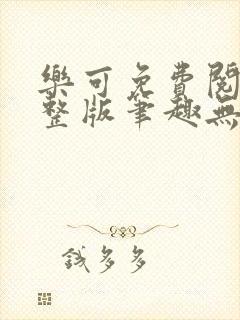 樂可免費閱
整版筆趣無
錢多多